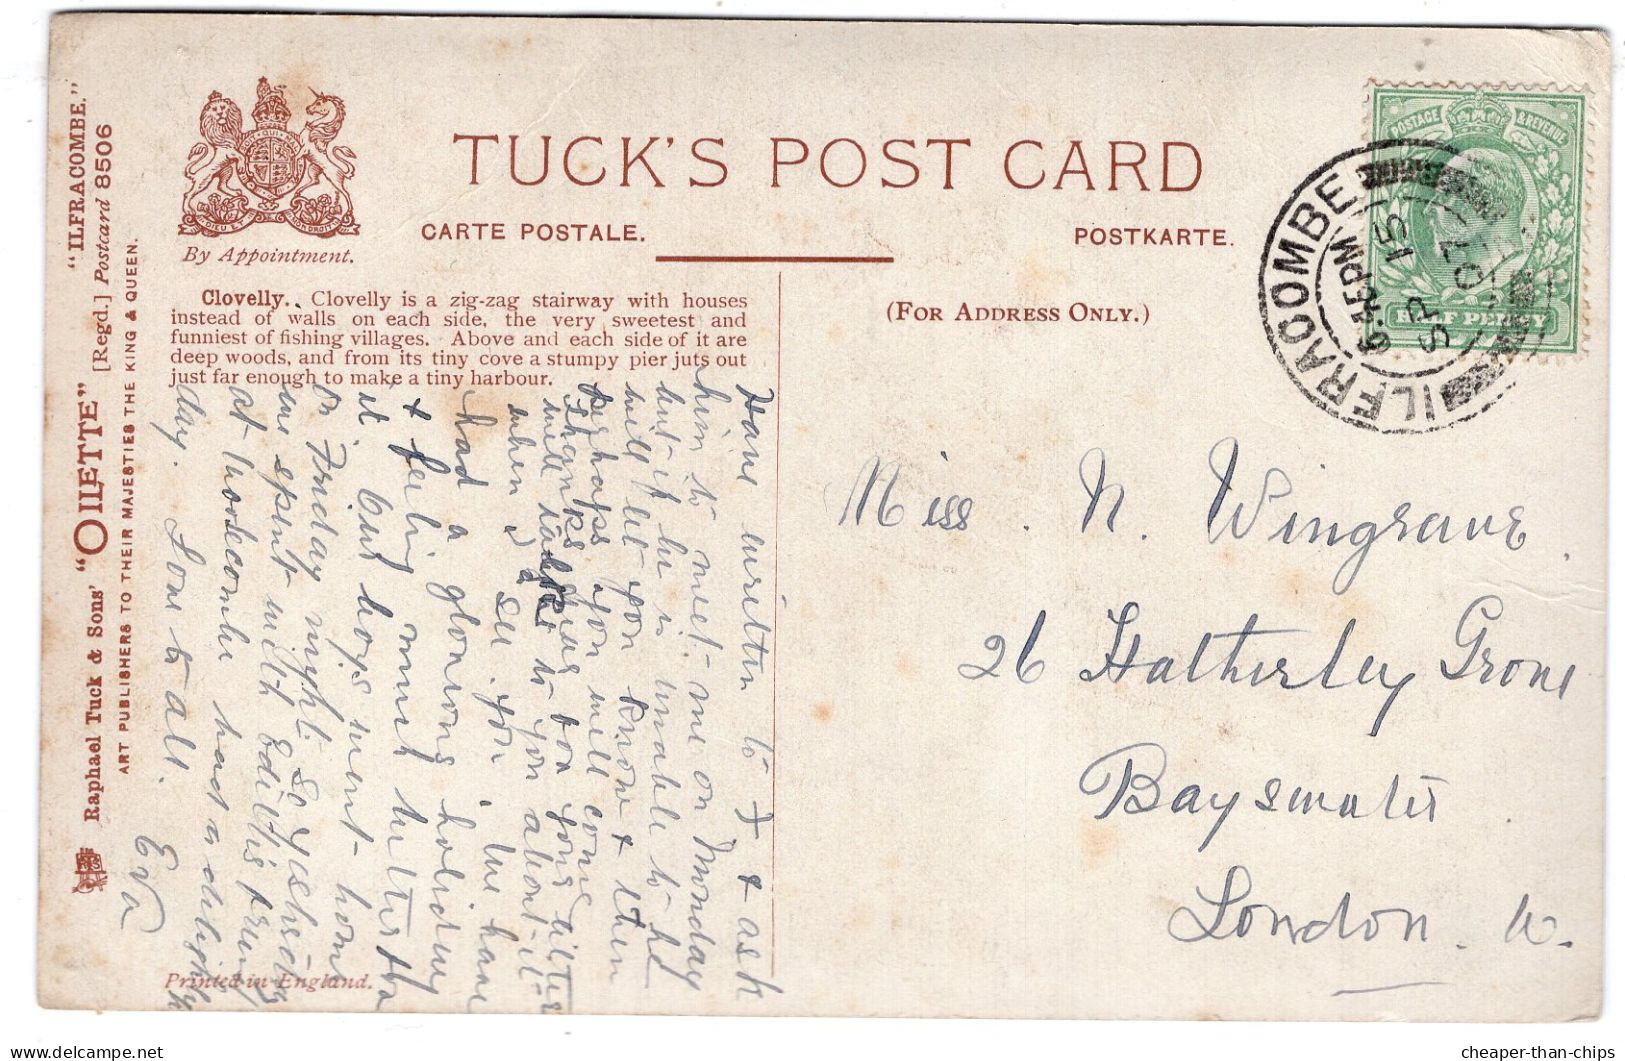 "ILFRACOMBE."
Raphael Tuck & Sons' "OILETTE" [Regd.] Postcard 8506
ART PUBLISHERS TO THEIR MAJESTIES THE KING & QUEEN.
By Appointment.
TUCK'S POST CARD
CARTE POSTALE.
POSTKARTE.
(FOR ADDRESS ONLY.)
Clovelly. Clovelly is a zig-zag stairway with houses
instead of walls on each side, the very sweetest and
funniest of fishing villages. Above and each side of it are
deep woods, and from its tiny cove a stumpy pier juts out
just far enough to make a tiny harbour.
POSTAGE & REVENUE
HALF PENNY
ILFRACOMBE
6.15PM
SP 15
07
Have written to F & ask
him to meet me on Monday
but if he is unable to he
will let you know & then
perhaps you will come
Thanks for your letter
will talk to you about it
when I see you. We have
had a glorious holiday
& feeling much better for
it but boys went home
on Friday night. So yesterday
we spent with Edith's friend
at Woolacombe had a delightful
day. Love to all.
Eva
Printed in England.
Miss. N. Wingrave.
26 Hatherley Grove
Bayswater
London. W.
cheaper-than-chips